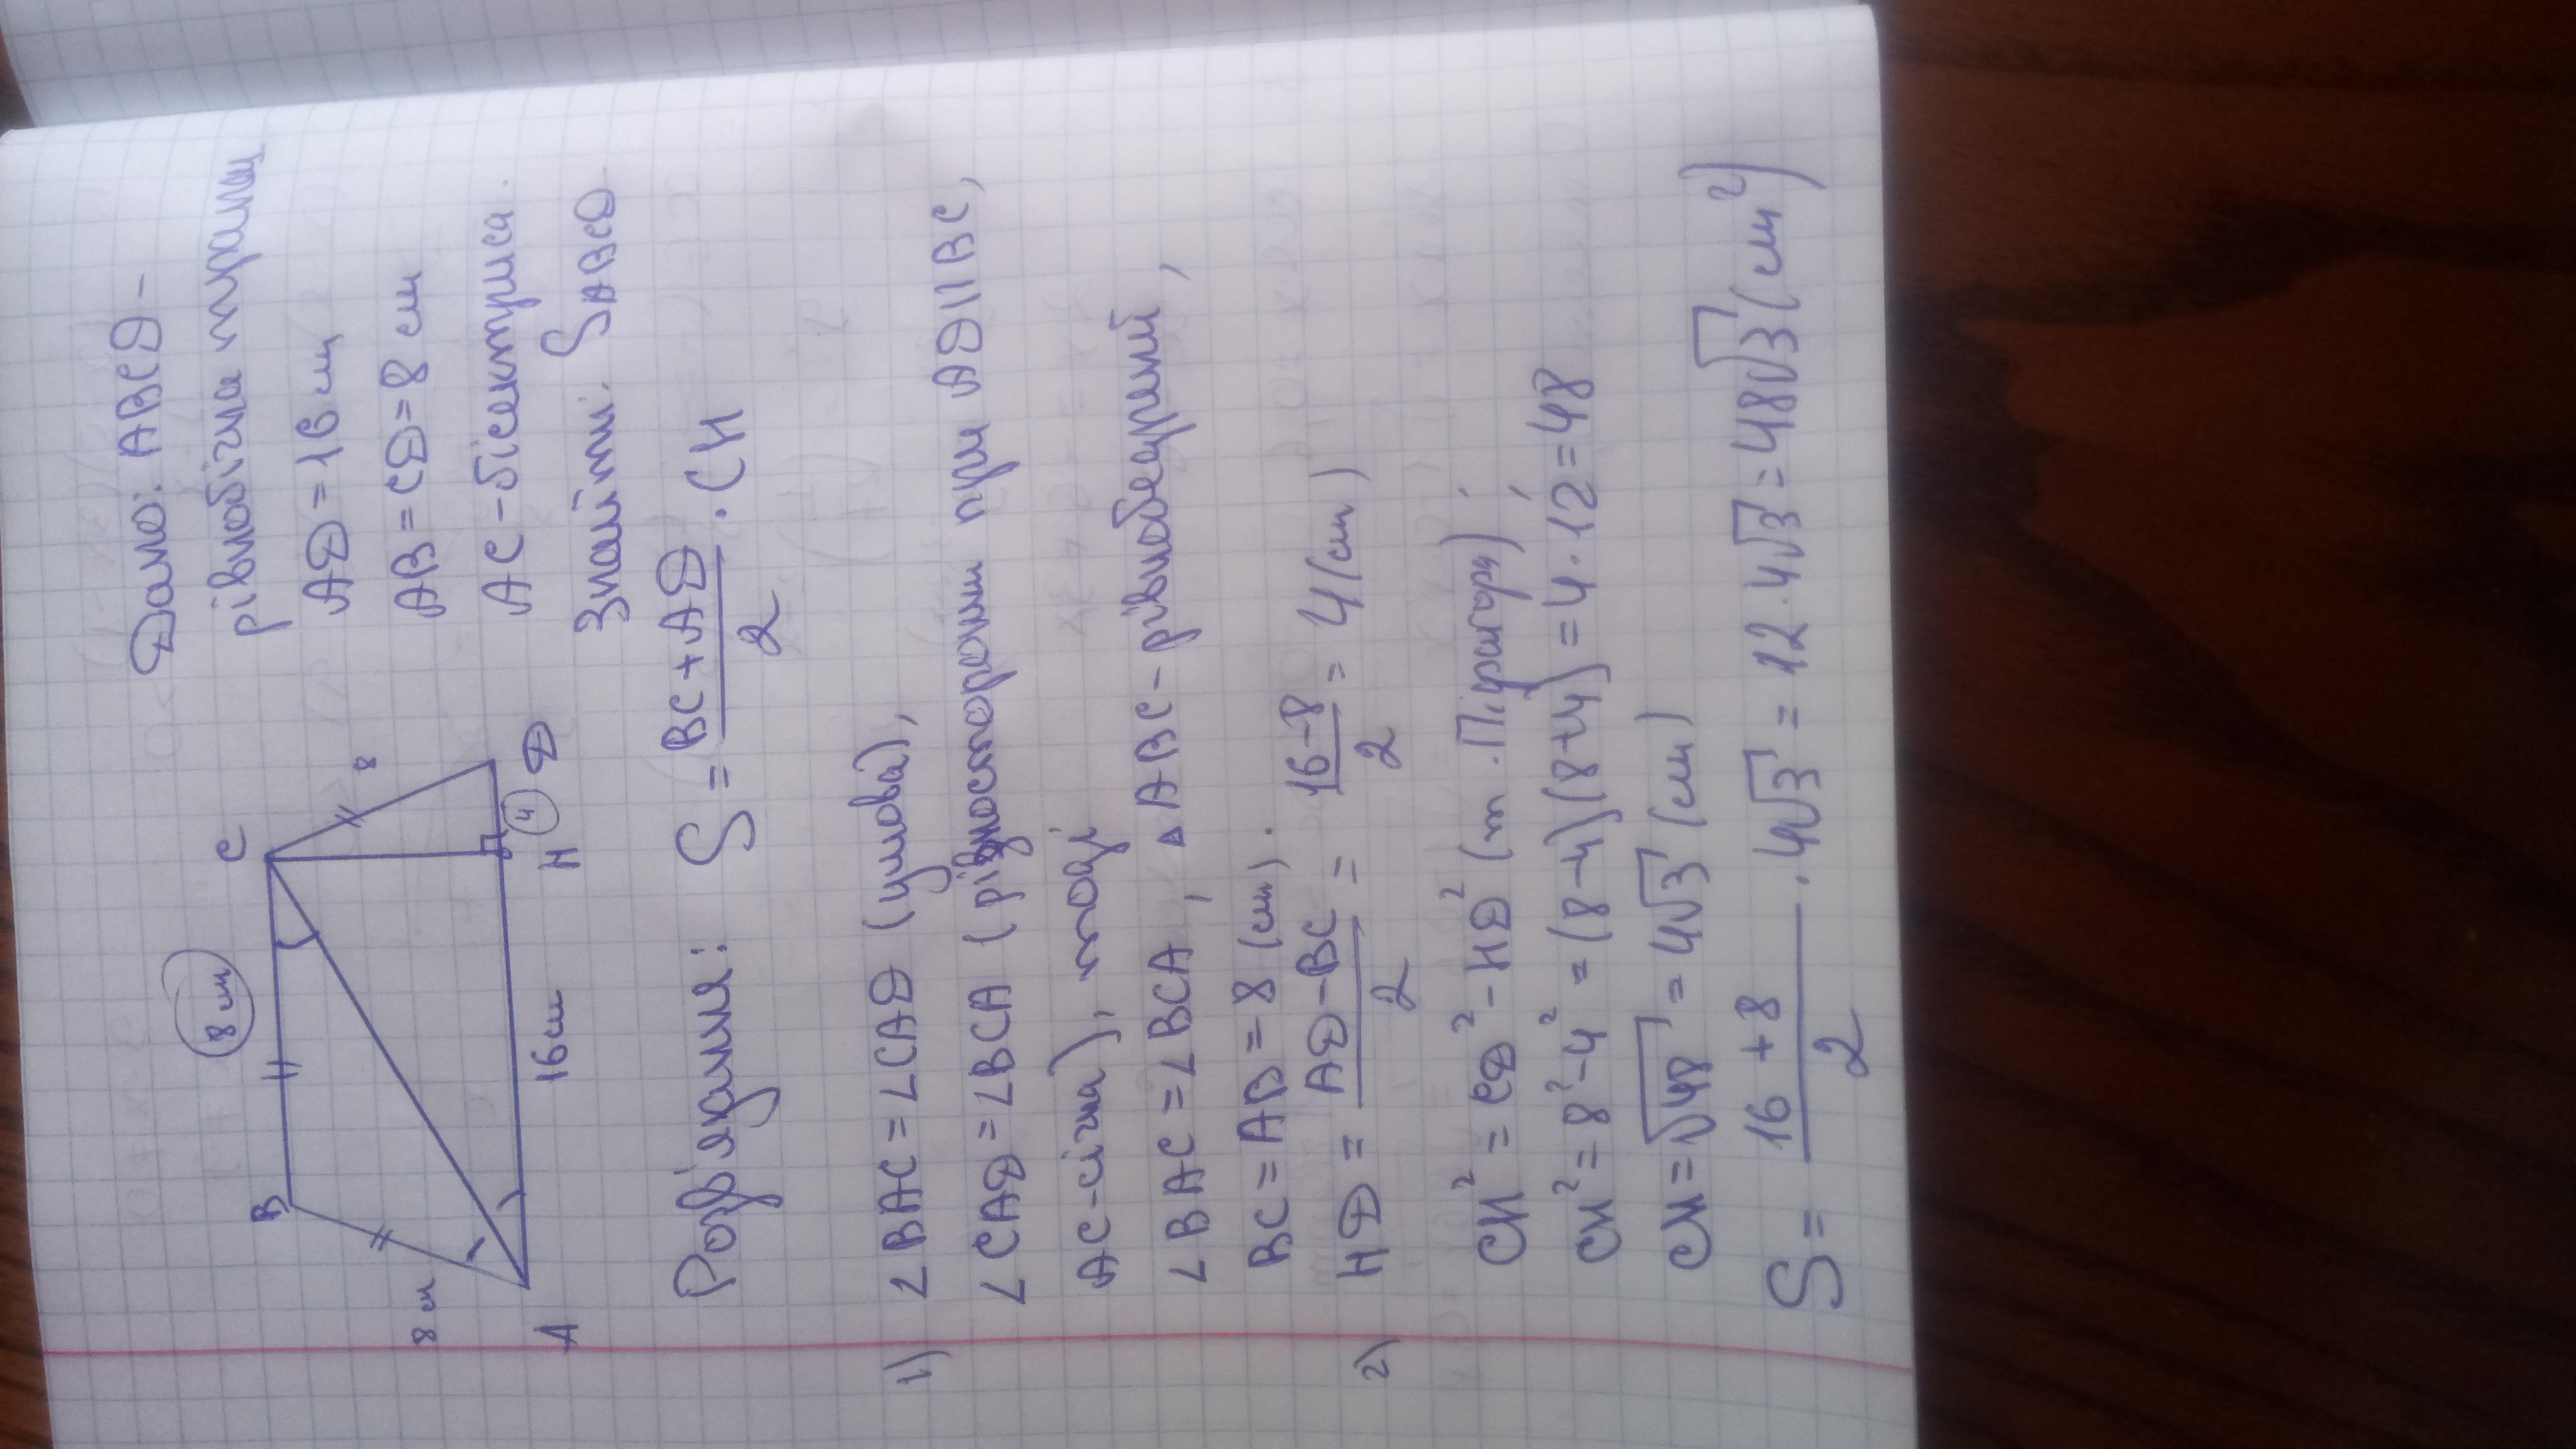 Дано: ABCD –
рівнобічна трапец
AD = 16 см
AB = CD = 8 см
AC – бісектриса.
Знайти: S ABCD
B
C
8 см
8 см
8
4
A
16 см
H
D
Розв'язання: S = (BC + AD)/2 · CH
1) ∠BAC = ∠CAD (умова),
∠CAD = ∠BCA (різносторонни при AD || BC,
AC – січна), тоді
∠BAC = ∠BCA, △ABC – рівнобедрений,
BC = AB = 8 (см).
2) HD = (AD – BC)/2 = (16 – 8)/2 = 4 (см)
CH² = CD² – HD² (т. Піфагора);
CH² = 8² – 4² = (8 – 4)(8 + 4) = 4 · 12 = 48
CH = √48 = 4√3 (см)
S = (16 + 8)/2 · 4√3 = 12 · 4√3 = 48√3 (см²)